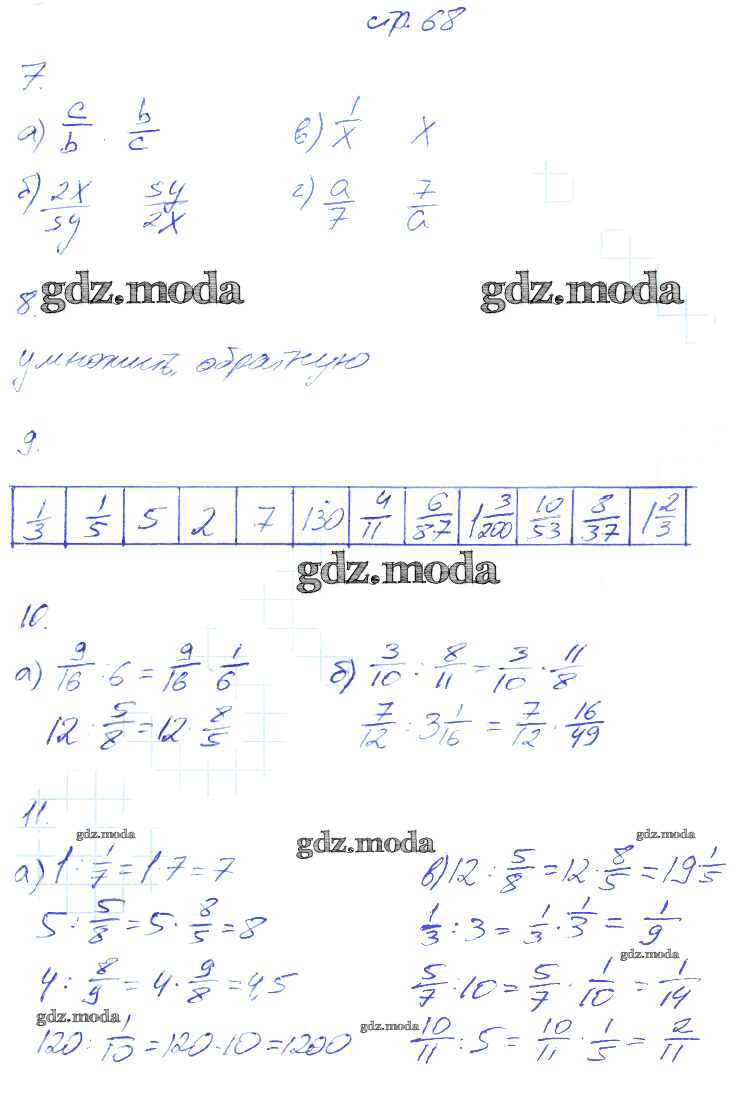 стр. 68
7.
а) c/b · b/c    в) 1/x    x
б) 2x/5y    5y/2x    г) a/7    7/a
gdz.moda    gdz.moda
8.
умножить, обратную
9.
1/3 | 1/5 | 5 | 2 | 7 | 130 | 4/11 | 6/8·7 | 1 3/200 | 10/53 | 8/37 | 1 2/3
gdz.moda
10.
а) 9/16 : 6 = 9/16 · 1/6    б) 3/10 : 8/11 = 3/10 · 11/8
12 : 5/8 = 12 · 8/5    7/12 : 3 1/16 = 7/12 · 16/49
11.
gdz.moda    gdz.moda    gdz.moda
а) 1 : 1/7 = 1 · 7 = 7    в) 12 : 5/8 = 12 · 8/5 = 19 1/5
5 : 5/8 = 5 · 8/5 = 8    1/3 : 3 = 1/3 · 1/3 = 1/9
gdz.moda
4 : 8/9 = 4 · 9/8 = 4,5    5/7 : 10 = 5/7 · 1/10 = 1/14
gdz.moda    gdz.moda
120 : 1/10 = 120 · 10 = 1200    10/11 : 5 = 10/11 · 1/5 = 2/11